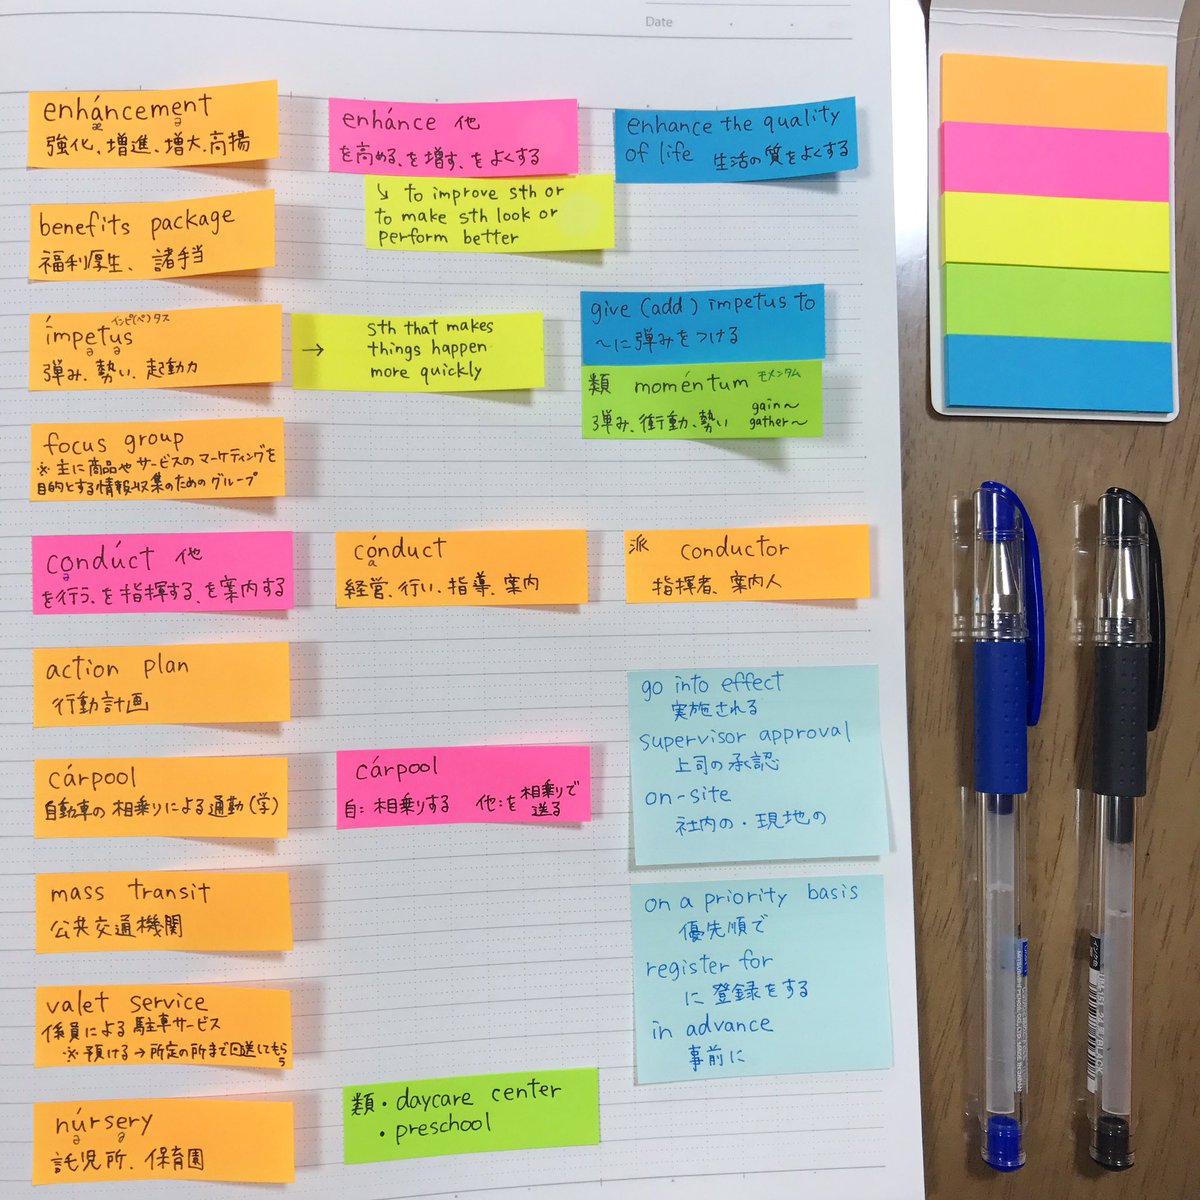 Date
enháncement
æ ə
強化、増進、増大、高揚
enhánce 他
を高める、を増す、をよくする
enhance the quality
of life 生活の質をよくする
↘ to improve sth or
to make sth look or
perform better
benefits package
福利厚生、諸手当
ímpetus インピ(ペ)タス
ə ə
弾み、勢い、起動力
→ sth that makes
things happen
more quickly
give (add) impetus to
〜に弾みをつける
類 moméntum モメンタム
弾み、衝動、勢い gain〜
gather〜
focus group
※主に商品やサービスのマーケティングを
目的とする情報収集のためのグループ
condúct 他
ə
を行う、を指揮する、を案内する
cónduct
a
経営、行い、指導、案内
派 conductor
指揮者、案内人
action plan
行動計画
cárpool
自動車の相乗りによる通勤(学)
cárpool
自:相乗りする 他:を相乗りで
送る
go into effect
実施される
supervisor approval
上司の承認
on-site
社内の・現地の
mass transit
公共交通機関
on a priority basis
優先順で
register for
に登録をする
in advance
事前に
valet service
係員による駐車サービス
※預ける→所定の所まで回送してもらう
núrsery
ə ə
託児所、保育園
類・daycare center
・preschool